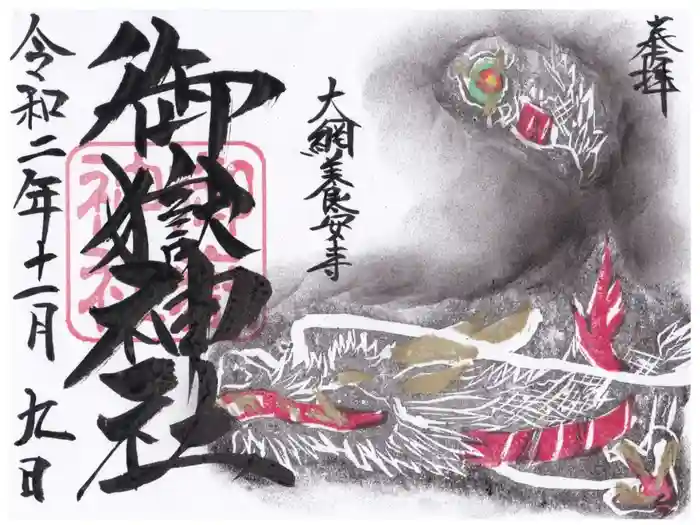 奉拝
大網美食安寺
御嶽神社
令和二年十一月九日